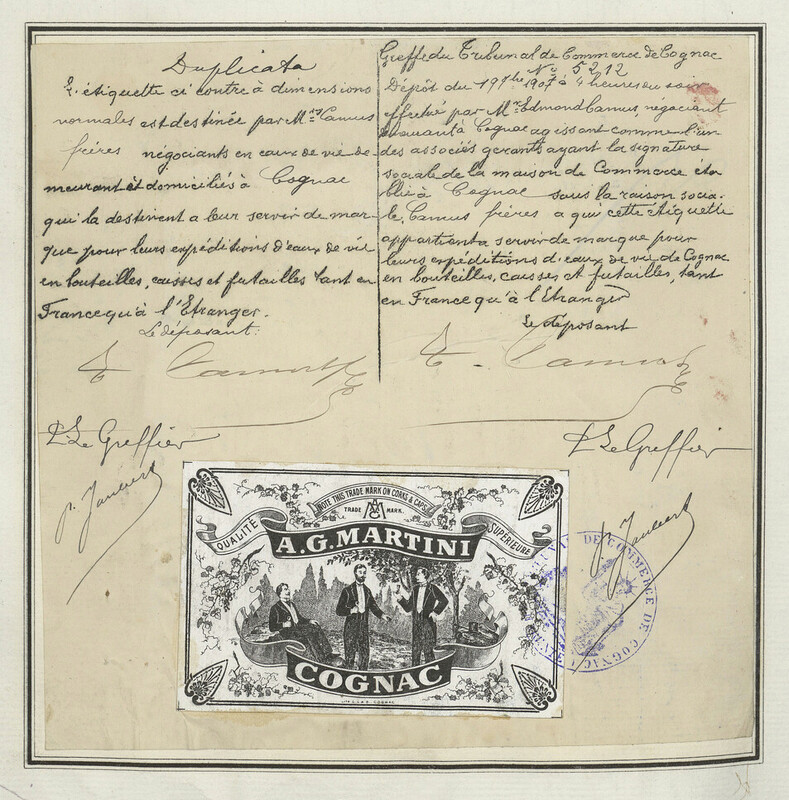 Duplicata
L'étiquette ci contre à dimensions
normales est destinée par Mrs Camus
frères négociants en eaux de vie de-
meurant et domiciliés à Cognac
qui la destinent a leur servir de mar-
que pour leurs expéditions d'eaux de vie
en bouteilles, caisses et futailles tant en
France qu'à l'Etranger.
Le déposant:
E. Camus
P. Le Greffier
P. Jaubert
Greffe du Tribunal de Commerce de Cognac
No 5212
Dépôt du 19 1907 à 4 heures du soir
effectué par Mr Edmond Camus, négociant
demeurant à Cognac agissant comme l'un
des associés gérants ayant la signature
sociale de la maison de Commerce éta
blie à Cognac sous la raison socia-
le, Camus frères a qui cette étiquette
appartient a servir de marque pour
leurs expéditions d'eaux de vie de Cognac
en bouteilles, caisses et futailles, tant
en France qu'à l'Etranger
Le déposant
E. Camus
P. Le Greffier
P. Jaubert
NOTE THIS TRADE MARK ON CORKS & CAPS
TRADE MARK.
QUALITÉ SUPÉRIEURE
A.G.MARTINI
COGNAC
DE COMMERCE DE COGNAC